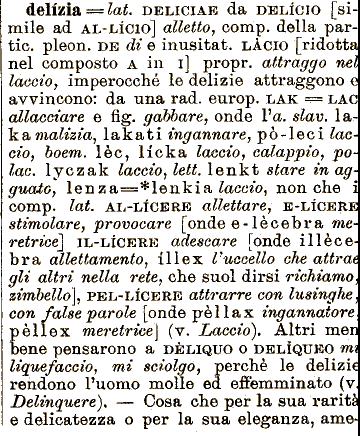 delízia = lat. DELICIAE da DELÍCIO [si-
mile ad AL-LÍCIO] alletto, comp. della par-
tic. pleon. DE di e inusitat. LÀCIO [ridotta
nel composto A in I] propr. attraggo nel
laccio, imperocchè le delizie attraggono e
avvincono: da una rad. europ. LAK = LAC
allacciare e fig. gabbare, onde l'a. slav. la-
ka malizia, lakati ingannare, pò-leci lac-
cio, boem. lèc, lícka laccio, calappio, po-
lac. lyczak laccio, lett. lenkt stare in ag-
guato, lenza=*lenkia laccio, non che i
comp. lat. AL-LÍCERE allettare, E-LÍCERE
stimolare, provocare [onde e-lècebra me-
retrice] IL-LÍCERE adescare [onde illèce-
bra allettamento, íllex l'uccello che attrae
gli altri nella rete, che suol dirsi richiamo,
zimbello], PEL-LÍCERE attrarre con lusinghe,
con false parole [onde pèllax ingannatore,
pèllex meretrice] (v. Laccio). Altri men
bene pensarono a DÈLIQUO o DELÍQUEO mi
liquefaccio, mi sciolgo, perchè le delizie
rendono l'uomo molle ed effemminato (v.
Delinquere). — Cosa che per la sua rarità
e delicatezza o per la sua eleganza, ame-